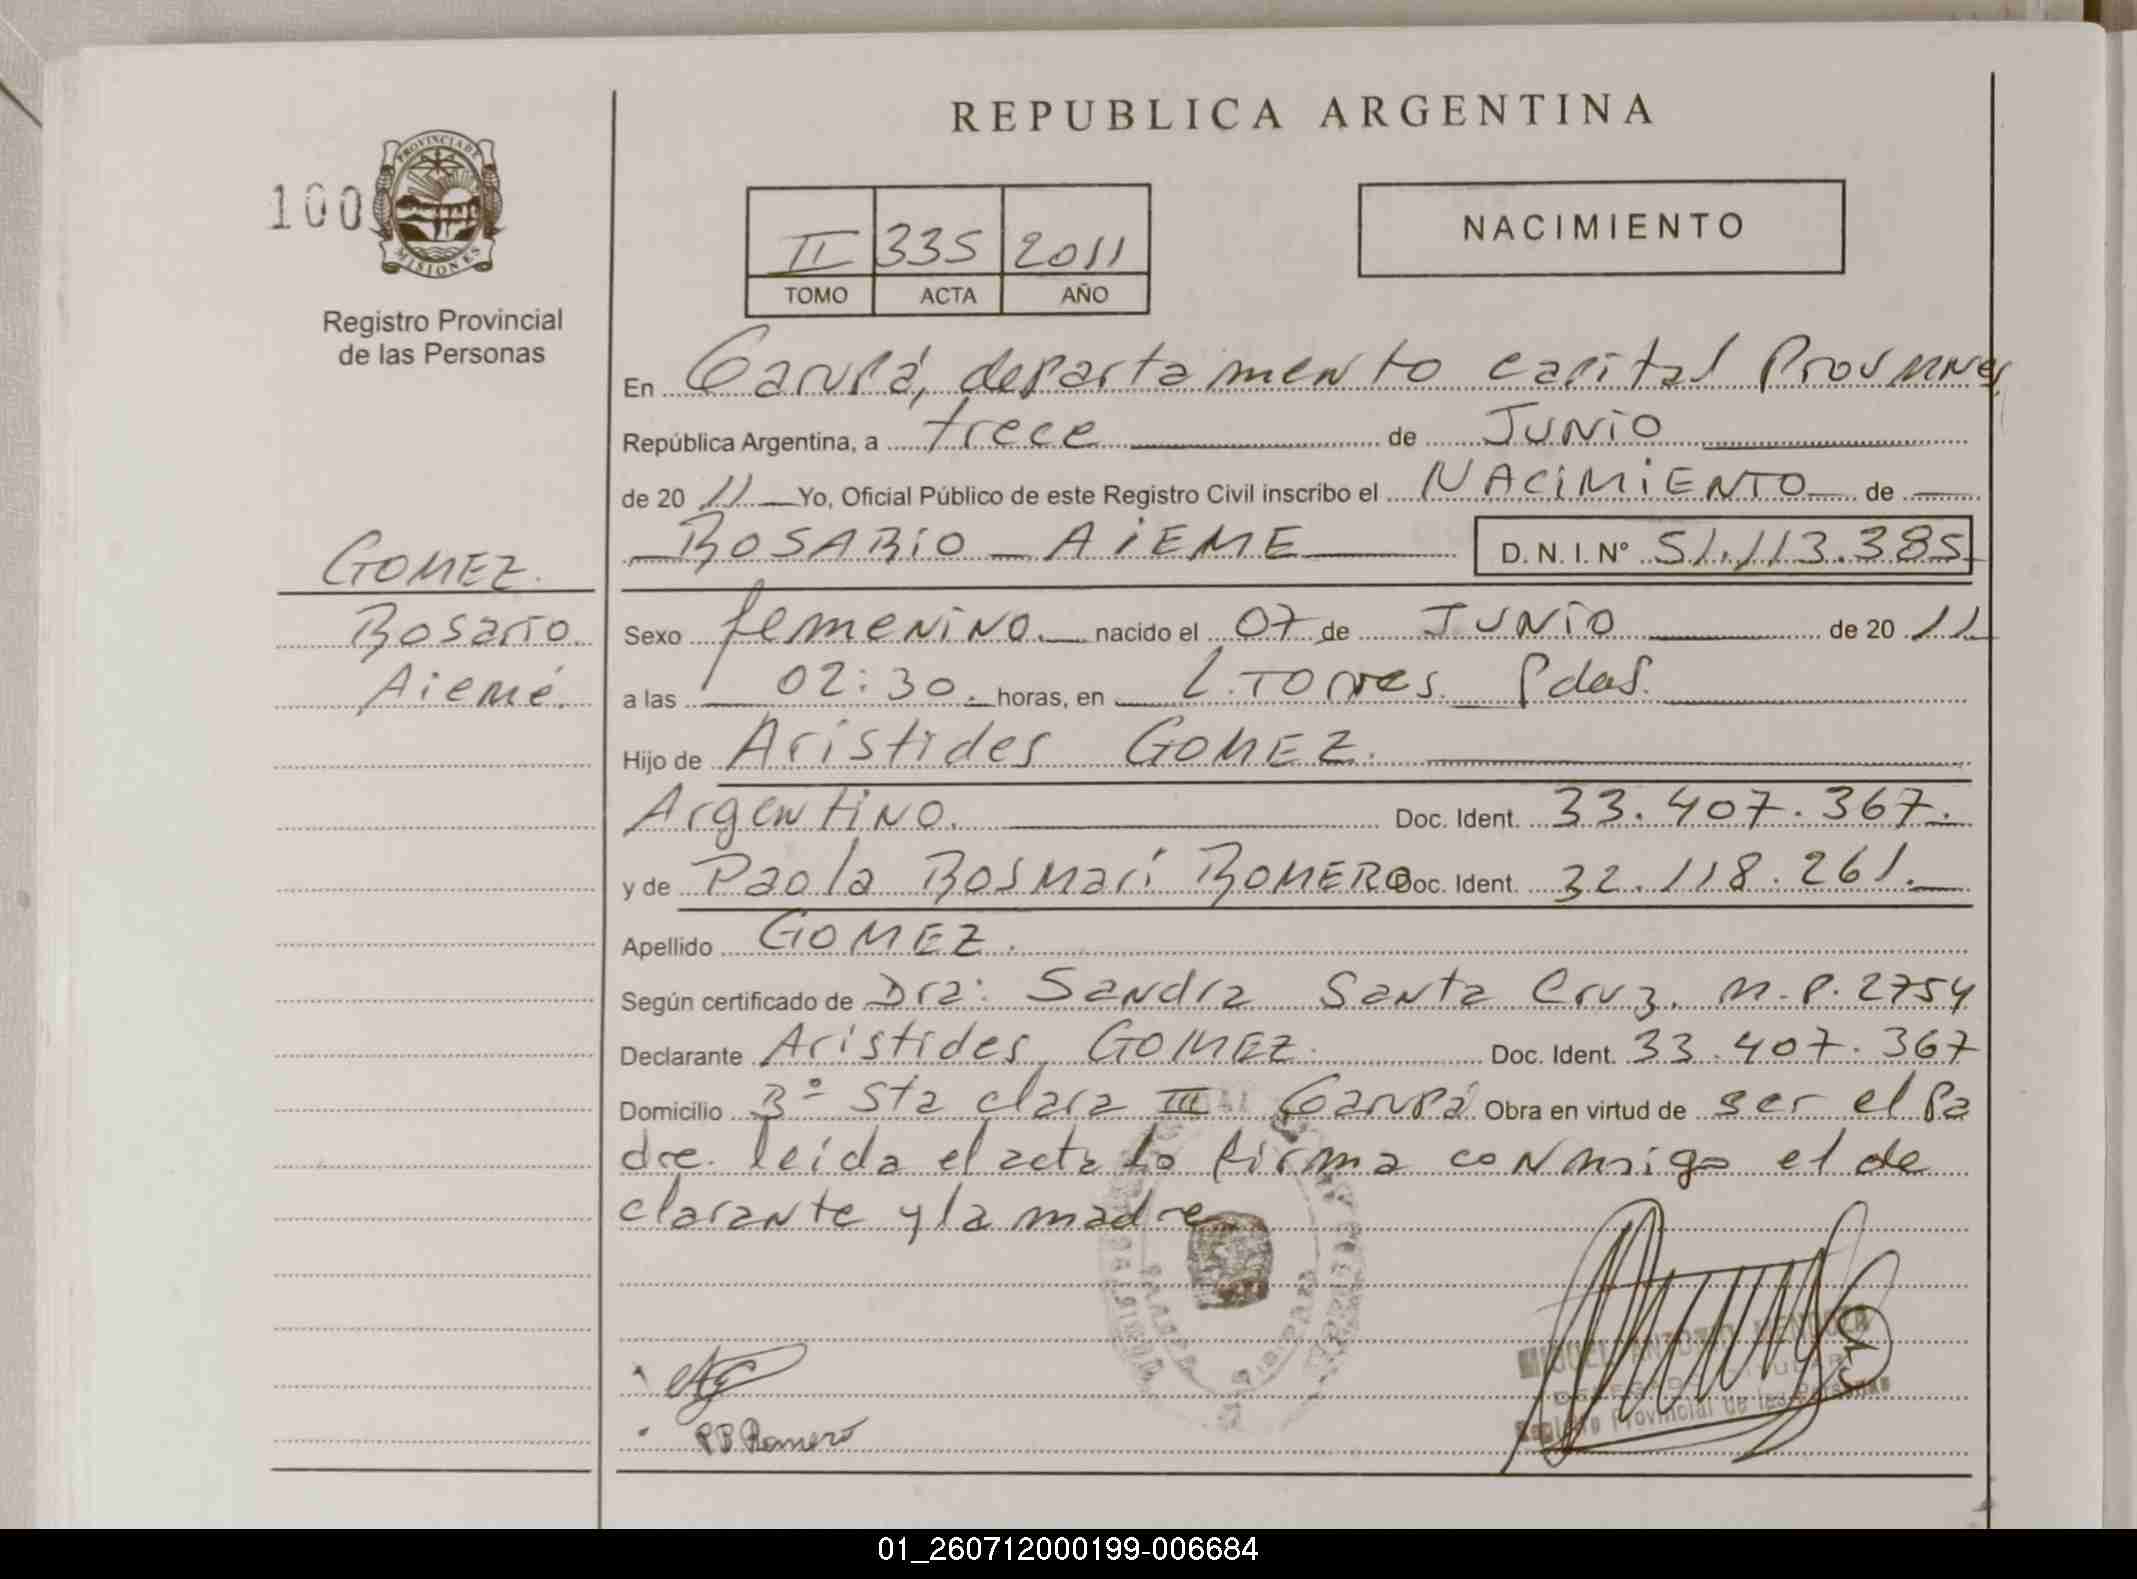 REPUBLICA ARGENTINA
100
PROVINCIA DE
MISIONES
Registro Provincial
de las Personas
II 335 2011
TOMO ACTA AÑO
NACIMIENTO
En Garupá, departamento capital Prov Mnes
República Argentina, a trece de Junio
de 20 11 Yo, Oficial Público de este Registro Civil inscribo el NACIMIENTO de
ROSARIO AIEME D. N. I. N° 51.113.385
GOMEZ.
Rosario
Aiemé.
Sexo femenino nacido el 07 de JUNIO de 20 11
a las 02:30. horas, en L. Torres. Pdas.
Hijo de Arístides GOMEZ.
Argentino. Doc. Ident. 33.407.367.
y de Paola Rosmarí ROMERO Doc. Ident. 32.118.261.
Apellido GOMEZ.
Según certificado de Dra: Sandra Santa Cruz. M.P. 2754
Declarante Arístides GOMEZ. Doc. Ident. 33.407.367
Domicilio Bº Sta clara III Garupá Obra en virtud de ser el Pa
dre. leída el acta lo firma conmigo el de
clarante y la madre
MIGUEL ANTONIO MENDOZA
DELEGADO TITULAR
Registro Provincial de las Personas
PR Romero
01_260712000199-006684